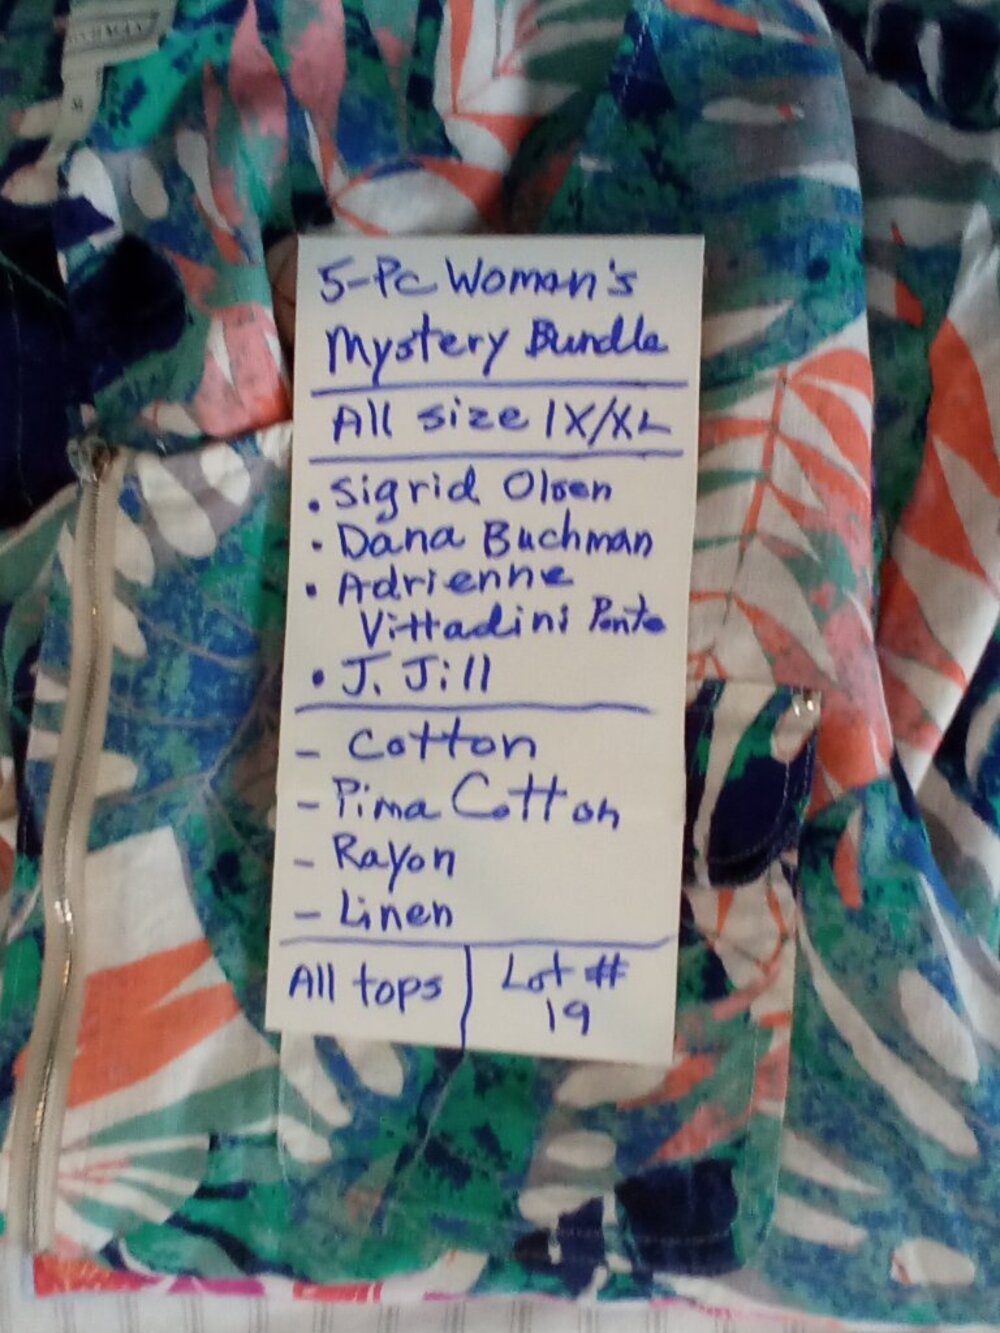 5-Pc Woman's
Mystery Bundle
All size 1X/XL
• Sigrid Olsen
• Dana Buchman
• Adrienne
Vittadini Ponte
• J. Jill
- Cotton
- Pima Cotton
- Rayon
- Linen
All tops
Lot #
19